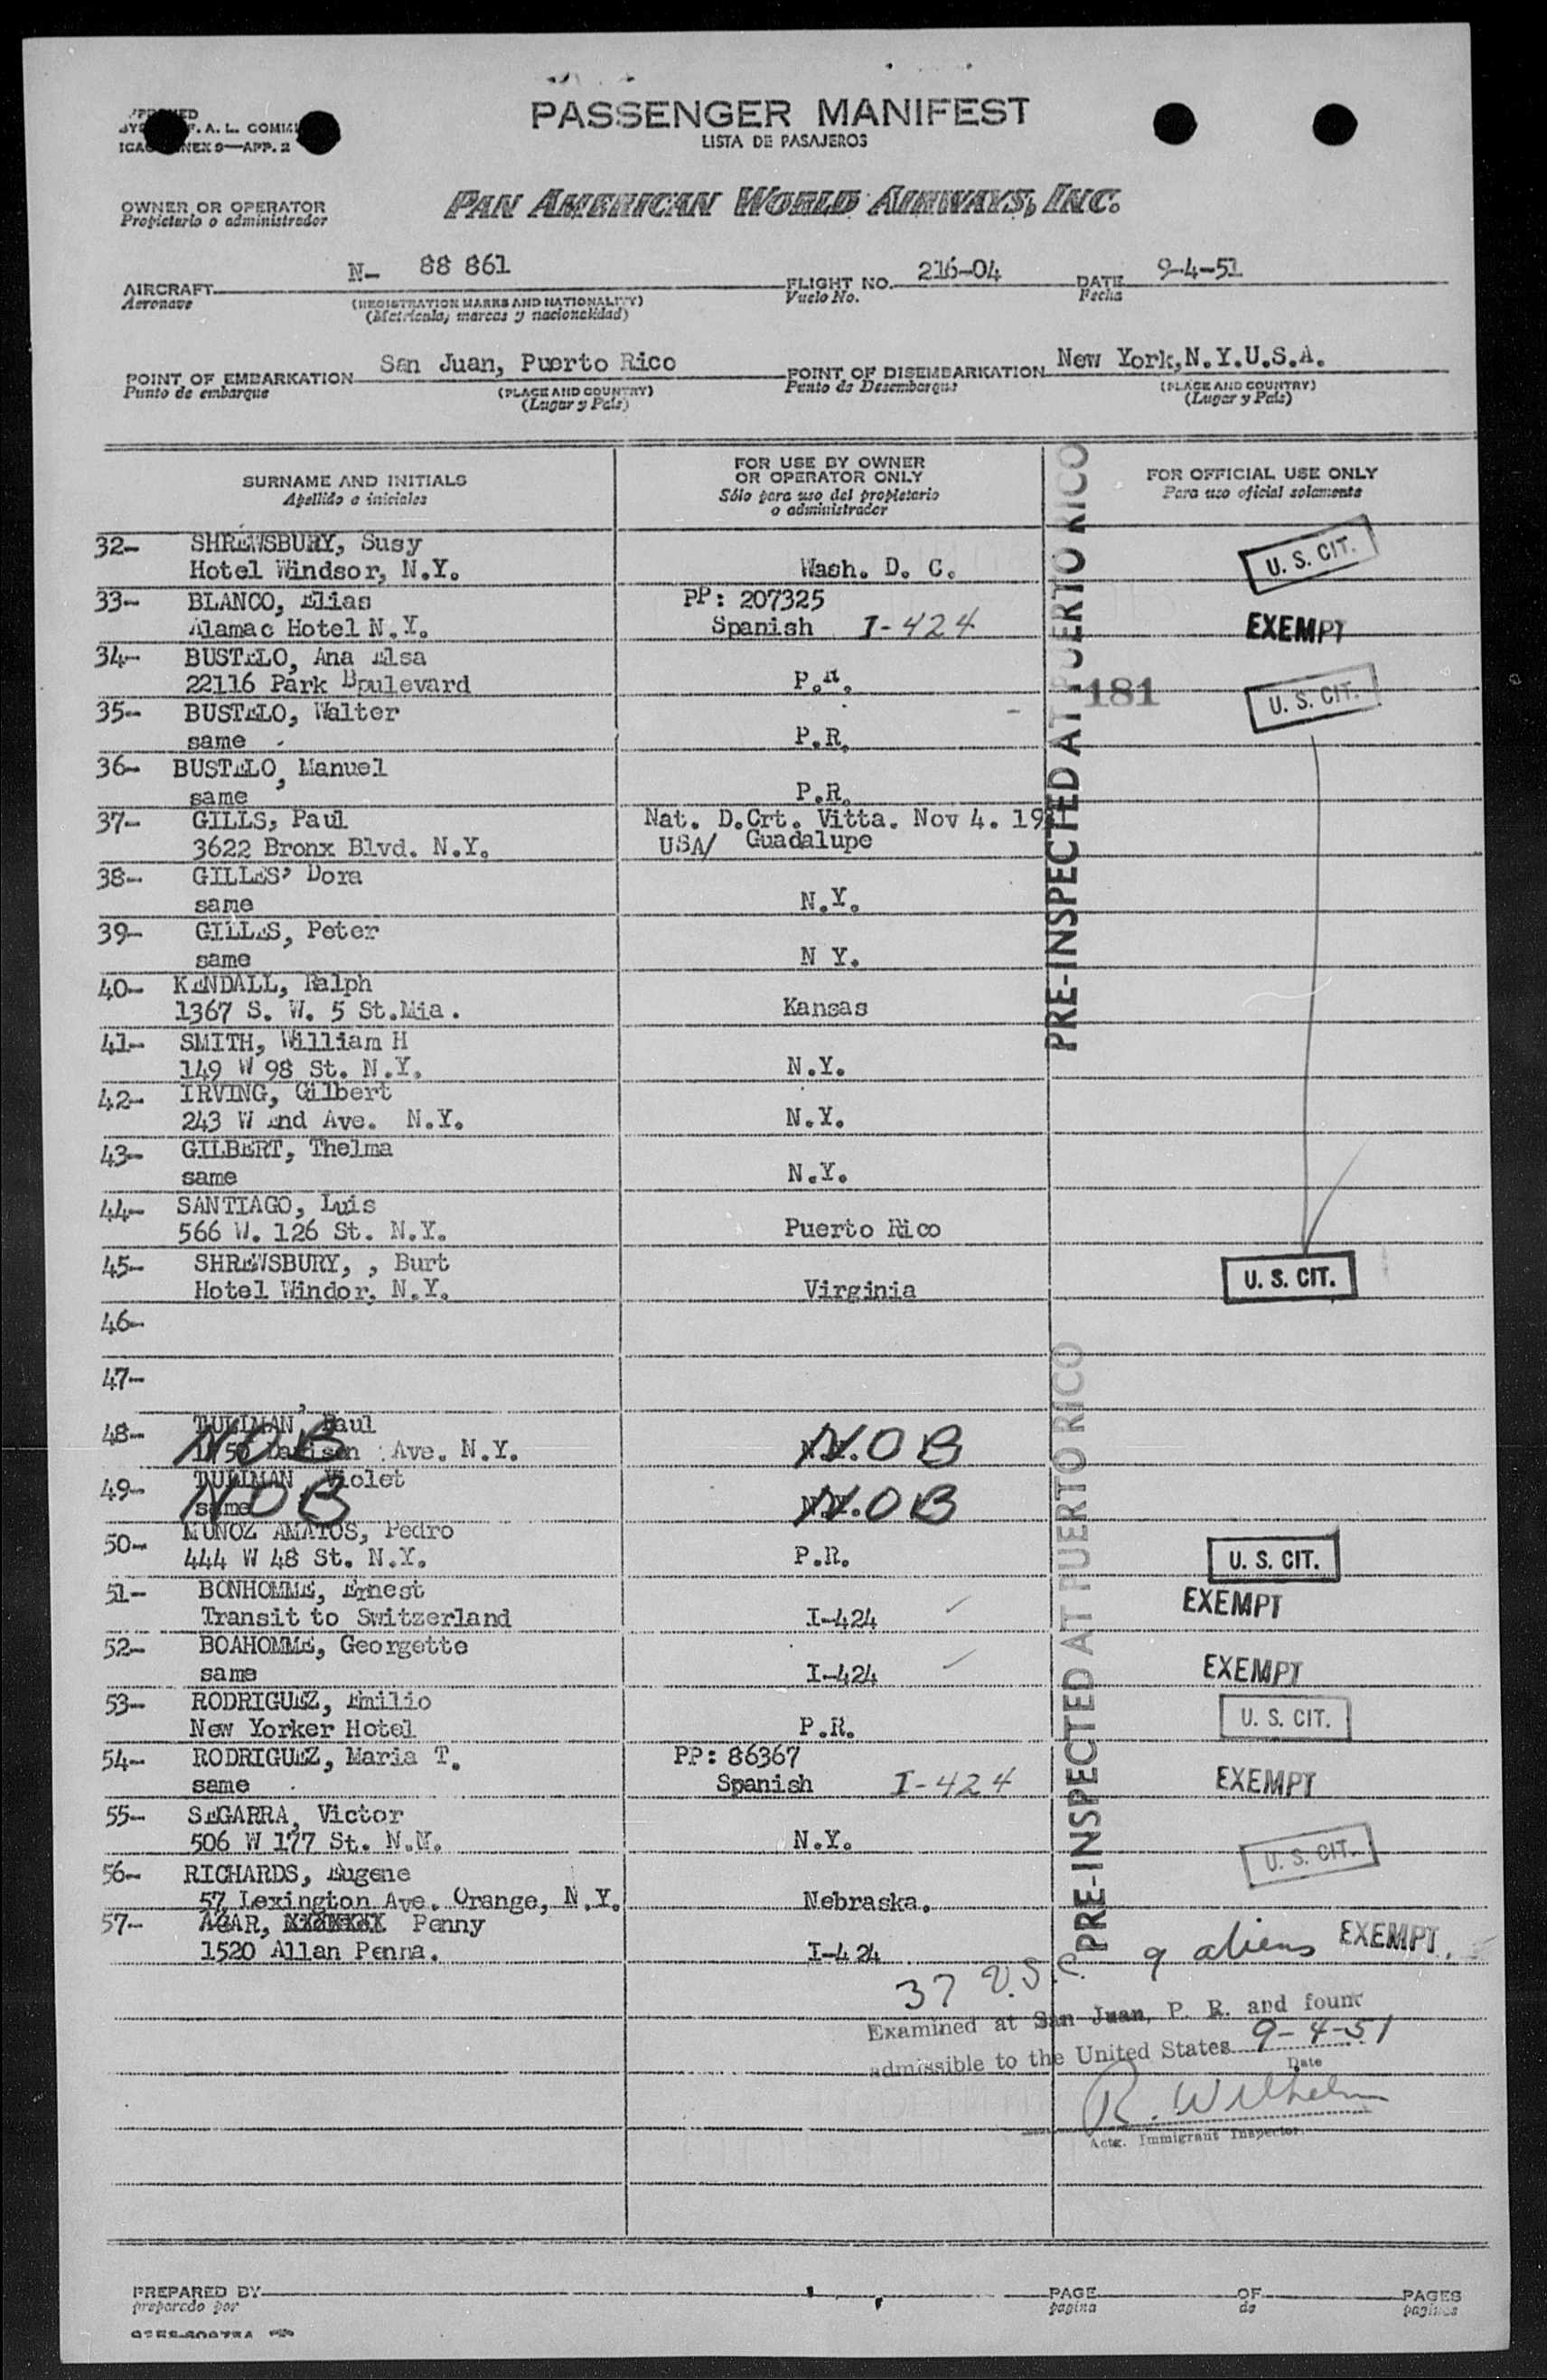 PASSENGER MANIFEST
LISTA DE PASAJEROS
F. A. L. COMMI
ICAO ANNEX 9—APP. 2
OWNER OR OPERATOR
Propietario o administrador
PAN AMERICAN WORLD AIRWAYS, INC.
AIRCRAFT N- 88 861 FLIGHT NO. 216-04 DATE 9-4-51
Aeronave (REGISTRATION MARKS AND NATIONALITY) Vuelo No. Fecha
(Matrícula, marcas y nacionalidad)
POINT OF EMBARKATION San Juan, Puerto Rico POINT OF DISEMBARKATION New York,N.Y.U.S.A.
Punto de embarque (PLACE AND COUNTRY) Punto de Desembarque (PLACE AND COUNTRY)
(Lugar y País) (Lugar y País)
SURNAME AND INITIALS
Apellido e iniciales
FOR USE BY OWNER
OR OPERATOR ONLY
Sólo para uso del propietario
o administrador
FOR OFFICIAL USE ONLY
Para uso oficial solamente
PRE-INSPECTED AT PUERTO RICO
32- SHREWSBURY, Susy
Hotel Windsor, N.Y. Wash. D. C. U. S. CIT.
33- BLANCO, Elias PP: 207325
Alamac Hotel N.Y. Spanish I-424 EXEMPT
34- BUSTELO, Ana Elsa
22116 Park Boulevard P.R. 181 U. S. CIT.
35- BUSTELO, Walter
same P.R.
36- BUSTELO, Manuel
same P.R.
37- GILLS, Paul Nat. D.Crt. Vitta. Nov 4. 19
3622 Bronx Blvd. N.Y. USA/ Guadalupe
38- GILLES, Dora
same N.Y.
39- GILLES, Peter
same N Y.
40- KENDALL, Ralph
1367 S. W. 5 St.Mia. Kansas
41- SMITH, William H
149 W 98 St. N.Y. N.Y.
42- IRVING, Gilbert
243 W End Ave. N.Y. N.Y.
43- GILBERT, Thelma
same N.Y.
44- SANTIAGO, Luis
566 W. 126 St. N.Y. Puerto Rico
45- SHREWSBURY, , Burt
Hotel Windor, N.Y. Virginia U. S. CIT.
46-
47-
PRE-INSPECTED AT PUERTO RICO
48- Paul
NOB Ave. N.Y. N.O B
49- Violet
NOB same N.O B
50- MUNOZ AMATOS, Pedro
444 W 48 St. N.Y. P.R. U. S. CIT.
51- BONHOMME, Ernest
Transit to Switzerland I-424 EXEMPT
52- BOAHOMME, Georgette
same I-424 EXEMPT
53- RODRIGUEZ, Emilio
New Yorker Hotel P.R. U. S. CIT.
54- RODRIGUEZ, Maria T. PP: 86367
same Spanish I-424 EXEMPT
55- SEGARRA, Victor
506 W 177 St. N.Y. N.Y. U. S. CIT.
56- RICHARDS, Eugene
57 Lexington Ave. Orange, N.Y. Nebraska.
57- AGAR, Penny
1520 Allan Penna. I-424 9 aliens EXEMPT.
37 U.S.C
Examined at San Juan, P. R. and found
admissible to the United States 9-4-51
Date
R. Wilhelm
Actg. Immigrant Inspector
PREPARED BY PAGE OF PAGES
preparado por página de páginas